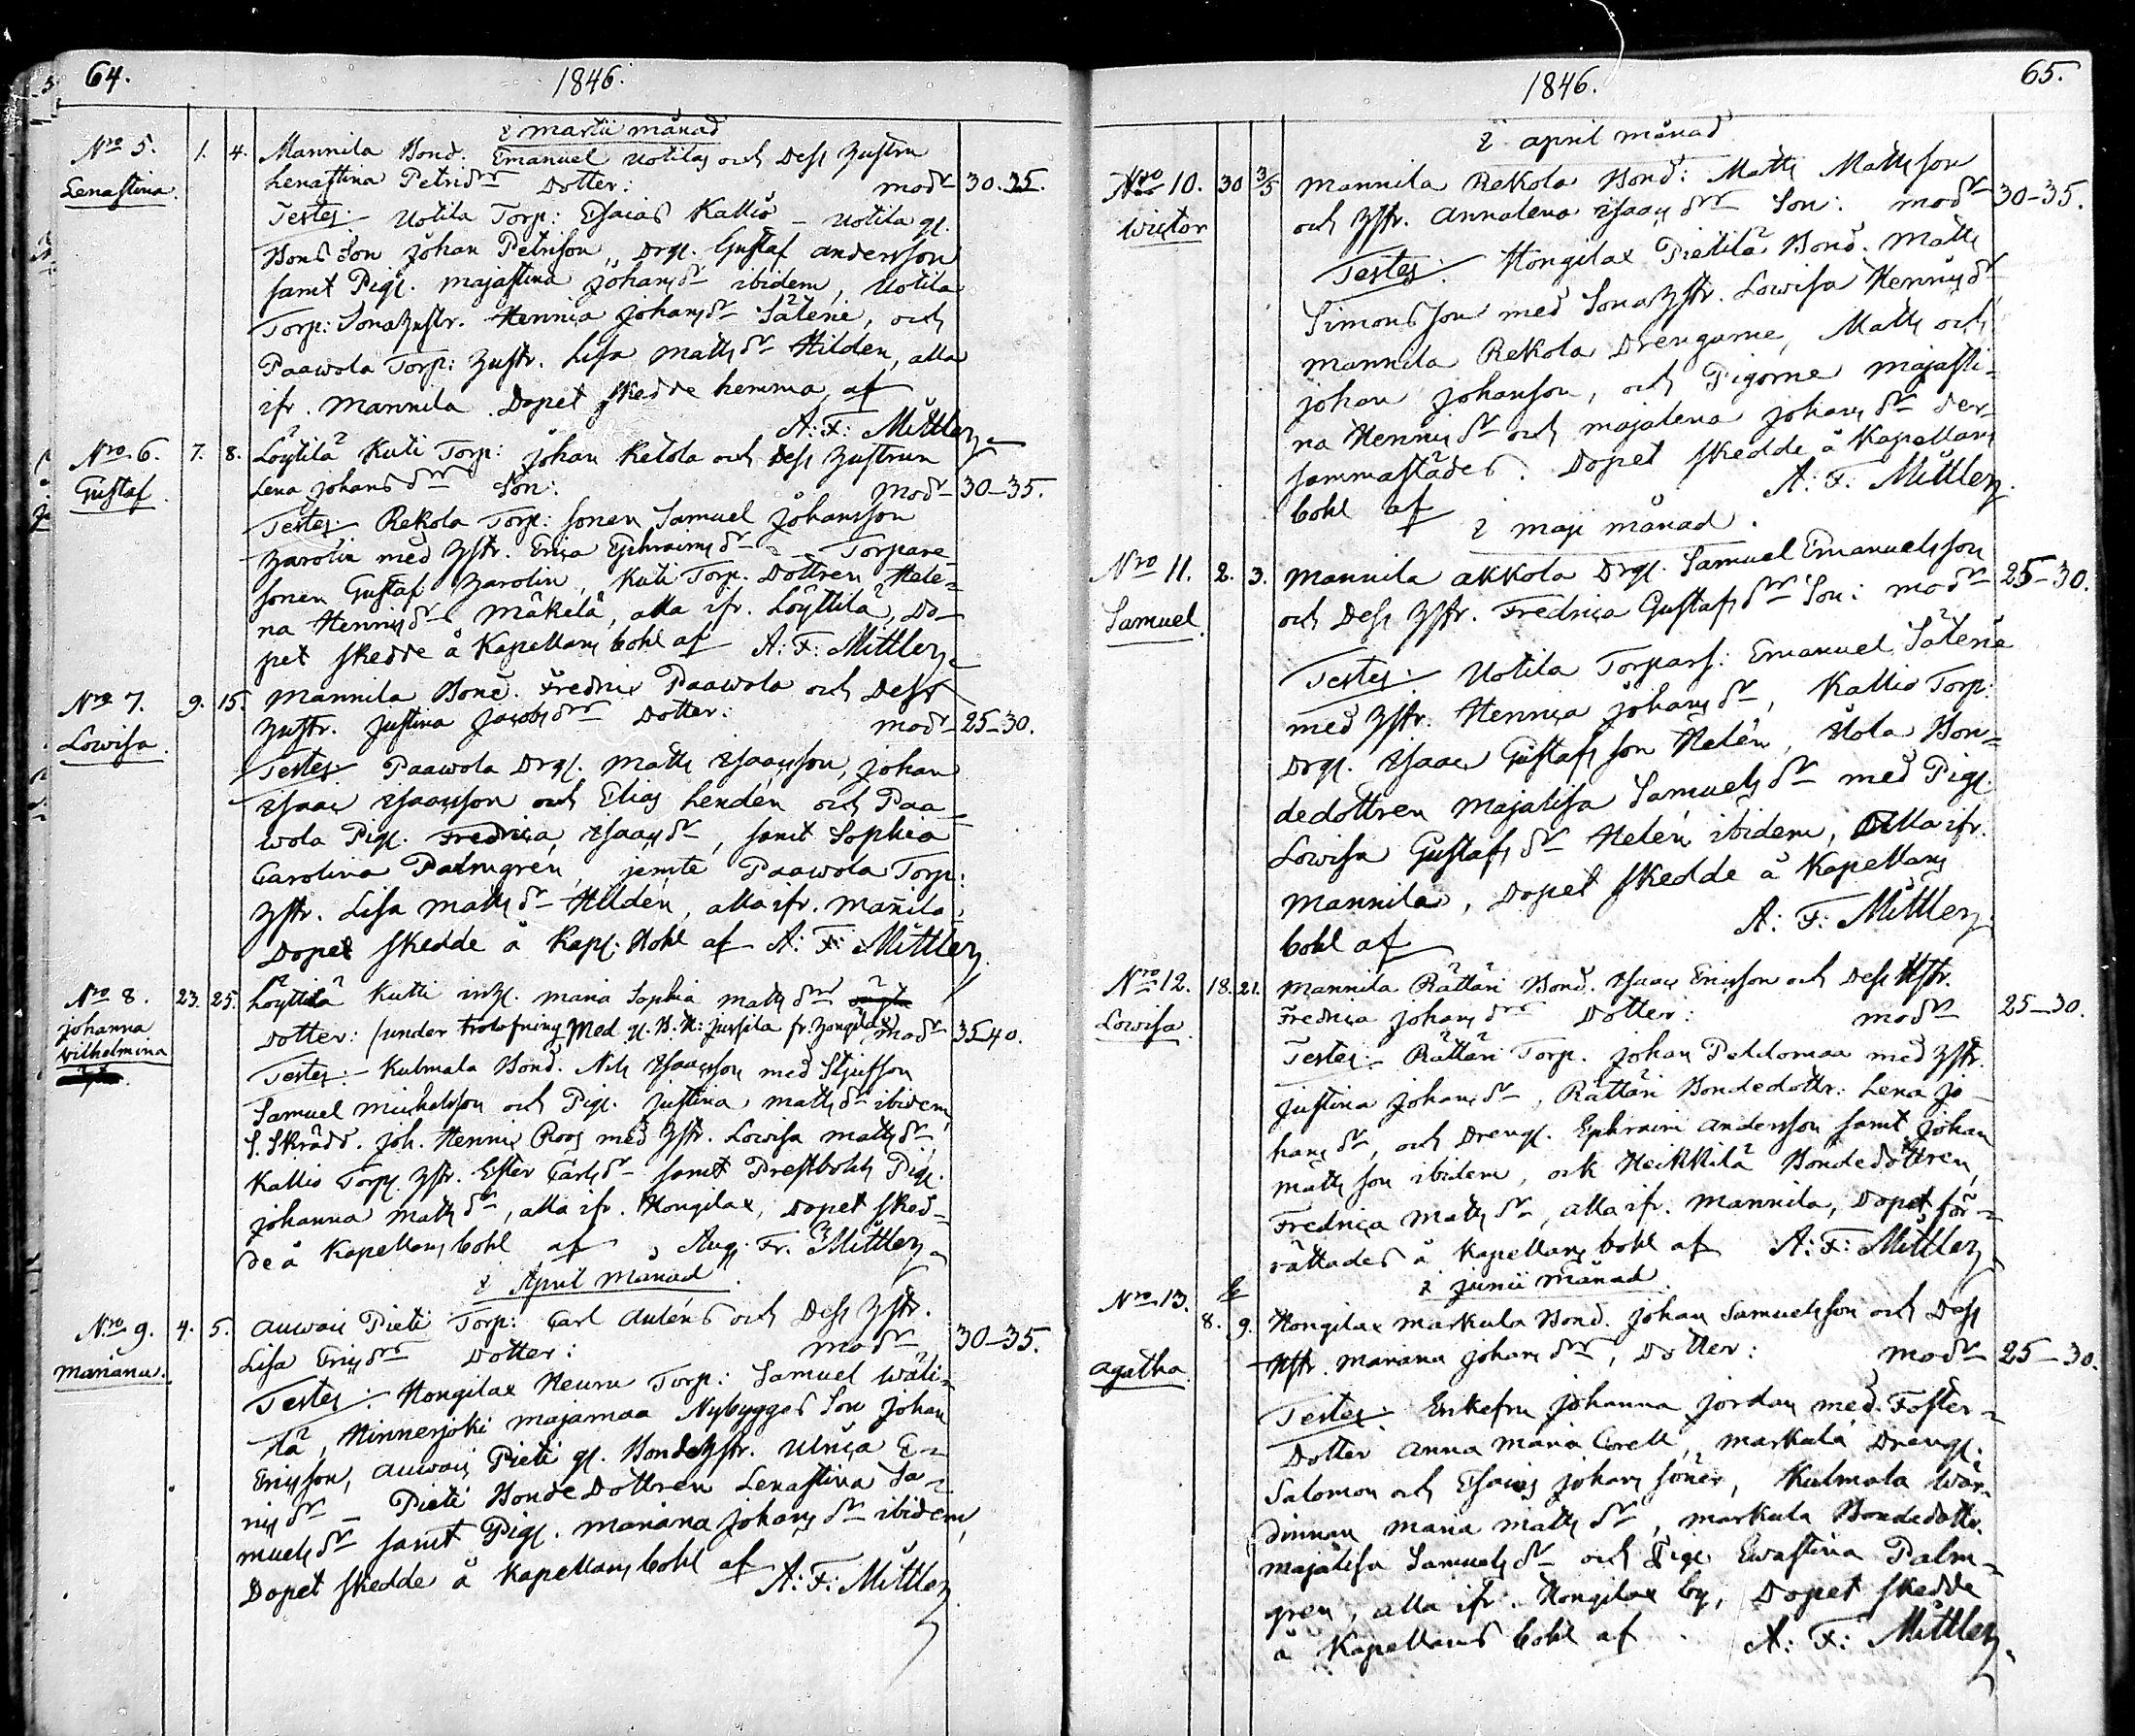 64.
1846.
i martii månad
Nro 5. 1. 4. Mannila Bond. Emanuel Uotilas och Dess Hustru
Lenastina. Lenastina Petridrs Dotter: modr 30.35.
Testes: Uotila Torp: Esaias Kallio - Uotila gl.
Bonds Son Johan Petrison, Drgl. Gustaf andersson
samt Pigl. majastina Johansdr ibidem, Uotila
Torp: Sonahustr. Henrica Johansdr Säteriä, och
Paawola Torp: Hustr. Lisa Mattsdr Hildén, alla
ifr. Mannila. Dopet skedde hemma af
A: F: Mittler
Nro 6. 7. 8. Löytilä Kuti Torp: Johan Ketola och Dess Hustrun
Gustaf. Lena Johansdrs Son: modr 30-35.
Testes: Rekola Torp: sonen Samuel Johansson
Zarolin med Hstr. Erica Ephraimsdr - Torpare
sonen Gustaf Zarolin, Kuti Torp. Dottren Hele=
na Henrisdr Mäkelä, alla ifr. Löyttilä, Do-
pet skedde å Kapellans bohl af A: F: Mittler
Nro 7. 9. 15. Mannila Bond. Fredric Paawola och Dess
Lowisa. Hustr. Justina Jacobsdrs Dotter: modr 25-30.
Testes: Paawola Drgl. Matts Isaacsson, Johan
Isaac Isaacsson och Elias Lendén och Paa-
wola Pigl. Fredrica Isaacsdr, samt Sophia
Carolina Palmgrén, jemte Paawola Torp:
Hstr. Lisa Mattsdr Hildén, alla ifr. Mañila,
Dopet skedde å Kapl: Bohl af A: F: Mittler
Nro 8. 23. 25. Löyttilä Kutti inhl. Maria Sophia Mattsdrs
Johanna Dotter: (under trolofning med gl. B. H: Jussila fr. Hongilax) modr 35-40.
Wilhelmina Testes: Kulmala Bond. Nils Isaacsson med Stjufson
Samuel Michelsson och Pigl. Justina Mattsdr ibidem,
S. Skrädd. Joh. Henric Roos med Hstr. Lowisa Mattsdr,
Kallio Torp. Hstr. Ester Carlsdr samt Prestbohls Pigl.
Johanna Mattsdr, alla ifr. Hongilax, Dopet sked=
de å Kapellans bohl af Aug. Fr. Mittler
i April Månad
Nro 9. 4. 5. Auwais Pieti Torp: Carl Auléns och Dess Hstr.
Mariana. Lisa Ericsdrs Dotter: modr 30-35.
Testes: Hongilax Heuru Torp: Samuel Wäli=
tä, Hinnerjoki Majamaa Nybyggars Son Johan
Ericsson, Auwais Pieti gl. Bondehstr. Ulrica E=
ricsdr - Pieti Bonde Dottren Lenastina Sa=
muelsdr samt Pigl. Mariana Johansdr ibidem,
Dopet skedde å Kapellans bohl af A: F: Mittler
65.
1846.
i april månad
Nro 10. 30 3/5 Mannila Rekola Bond: Matts Mattsson
Wictor och Hstr. Annalena Isaacsdrs Son: modr 30-35.
Testes: Hongilax Pietilä Bond. Matts
Simonsson med Sonahstr. Lowisa Henricsdr
Mannila Rekola Drengarne, Matts och
Johan Johansson, och Pigorne Majasti=
na Henricsdr och Majalena Johansdr der=
sammastädes. Dopet skedde å Kapellans
bohl af A: F: Mittler
i maji månad.
Nro 11. 2. 3. Mannila Akkola Drgl. Samuel Emanuelsson
Samuel. och Dess Hstr. Fredrica Gustafsdrs Son: modr 25-30.
Testes: Uotila Torpars: Emanuel Säteriä
med Hstr. Henrica Johansdr, Kallio Torp:
Drgl. Isaac Gustafsson Helén, Uola Bon=
dedottren Majalisa Samuelsdr med Pigl.
Lowisa Gustafsdr Helén ibidem, Alla ifr.
Mannila, Dopet skedde å Kapellans
bohl af A: F: Mittler
Nro 12. 18. 21. Mannila Rättäri Bond. Isaac Ericsson och Dess Hstr.
Lowisa. Fredrica Johansdrs Dotter: modr 25-30.
Testes: Rättäri Torp. Johan Peldomaa med Hstr.
Justina Johansdr, Rättäri Bondedottr: Lena Jo-
hansdr, och Drengl. Ephraim Andersson samt Johan
Mattsson ibidem, och Heikkilä Bondedottren,
Fredrica Mattsdr, alla ifr. Mannila, Dopet för=
rättades å Kapellans bohl af A: F: Mittler
i junii månad
Nro 13. 8. 9. Hongilax Markula Bond. Johan Samuelsson och Dess
Agatha. Hstr. Mariana Johansdrs, Dotter: modr 25-30.
Testes: Enkefru Johanna Jordan med Foster=
Dotter Anna Maria Corell, Markula Drengl.
Salomon och Esaias Johans söner, Kulmala Wär=
dinnan Maria Mattsdr, Markula Bondedottr.
Majalisa Samuelsdr och Pigl. Ewastina Palm=
gren, alla ifr. Hongilax by, Dopet skedde
å Kapellans bohl af A: F: Mittler